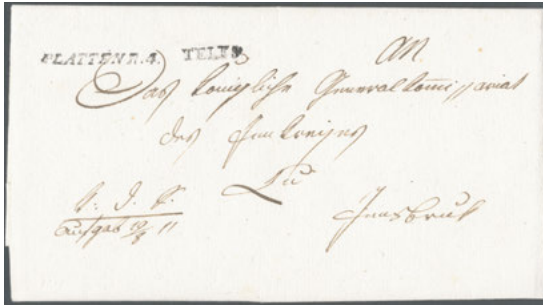 BLATTEN.R.4. TELFS
An
Das königliche General Kom̄issariat
des Innkreises
Zu
Innsbruk
Aufgab 9/8 11